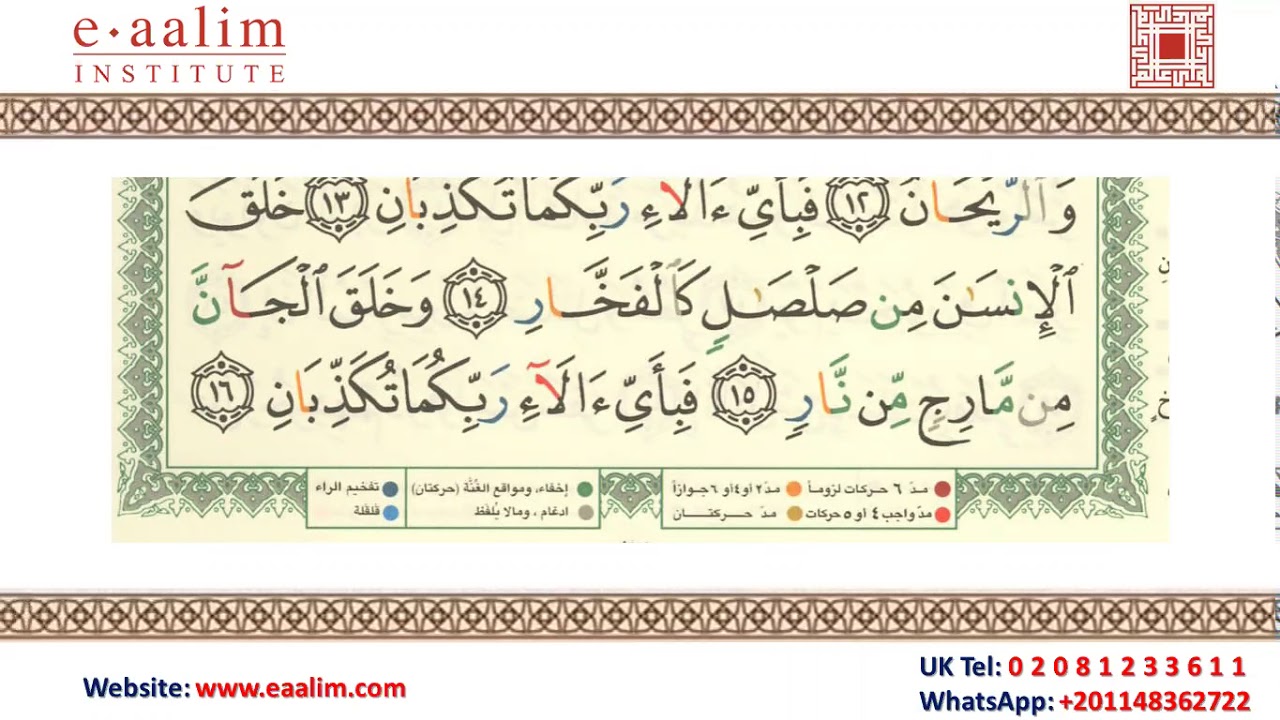 e·aalim
INSTITUTE
وَٱلرَّيْحَانُ ١٢ فَبِأَىِّ ءَالَآءِ رَبِّكُمَا تُكَذِّبَانِ ١٣ خَلَقَ
ٱلْإِنسَـٰنَ مِن صَلْصَـٰلٍ كَٱلْفَخَّارِ ١٤ وَخَلَقَ ٱلْجَآنَّ
مِن مَّارِجٍ مِّن نَّارٍ ١٥ فَبِأَىِّ ءَالَآءِ رَبِّكُمَا تُكَذِّبَانِ ١٦
مدّ ٦ حركات لزوماً مدّ٢ أو٤أو ٦جوازاً إخفاء، ومواقع الغُنَّة (حركتان) تفخيم الراء
مدّ واجب ٤ أو ٥ حركات مدّ حـركتـان ادغام ، ومالا يُلفَظ قلقلة
Website: www.eaalim.com
UK Tel: 0 2 0 8 1 2 3 3 6 1 1
WhatsApp: +201148362722